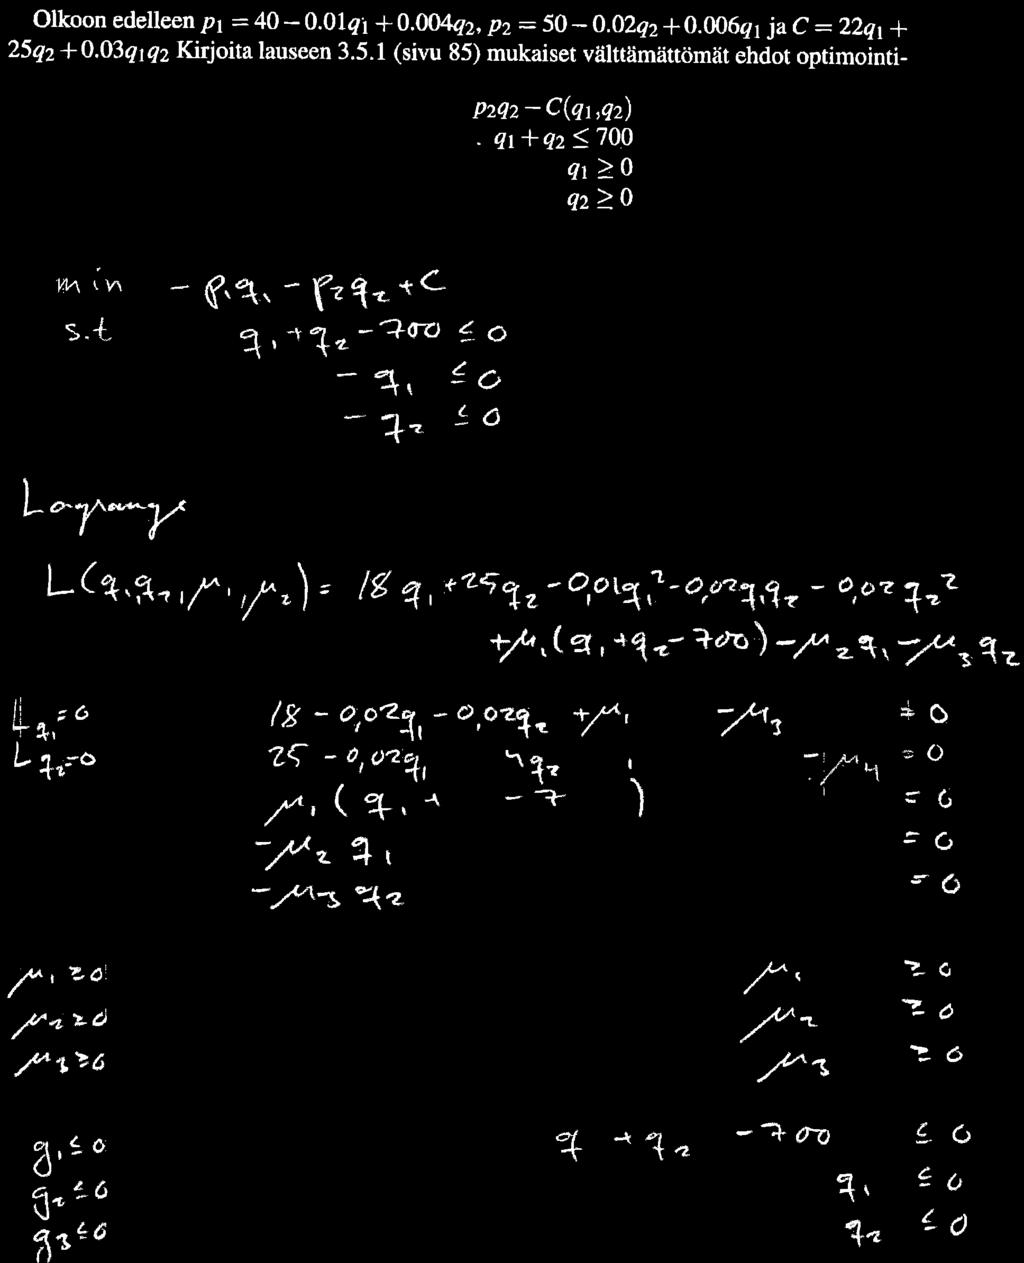 Olkoon edelleen p₁ = 40 − 0.01q₁ + 0.004q₂, p₂ = 50 − 0.02q₂ + 0.006q₁ ja C = 22q₁ +
25q₂ + 0.03q₁q₂ Kirjoita lauseen 3.5.1 (sivu 85) mukaiset välttämättömät ehdot optimointi-
p₂q₂ − C(q₁,q₂)
. q₁ + q₂ ≤ 700
q₁ ≥ 0
q₂ ≥ 0
min − p₁q₁ − p₂q₂ + C
s.t q₁ + q₂ − 700 ≤ 0
− q₁ ≤ 0
− q₂ ≤ 0
Lagrange
L(q₁q₂, μ₁, μ₂) = 18q₁ + 25q₂ − 0,01q₁² − 0,02q₁q₂ − 0,02q₂²
+ μ₁(q₁ + q₂ − 700) − μ₂q₁ − μ₃q₂
L_q₁ = 0 18 − 0,02q₁ − 0,02q₂ + μ₁ − μ₃ = 0
L_q₂ = 0 25 − 0,02q₁ 4q₂ − μ₄ = 0
μ₁(q₁ + − 7 ) = 0
− μ₂ q₁ = 0
− μ₃ q₂ = 0
μ₁ ≥ 0 μ₁ ≥ 0
μ₂ ≥ 0 μ₂ ≥ 0
μ₃ ≥ 0 μ₃ ≥ 0
g₁ ≤ 0 q + q₂ − 700 ≤ 0
g₂ ≤ 0 q₁ ≤ 0
g₃ ≤ 0 q₂ ≤ 0